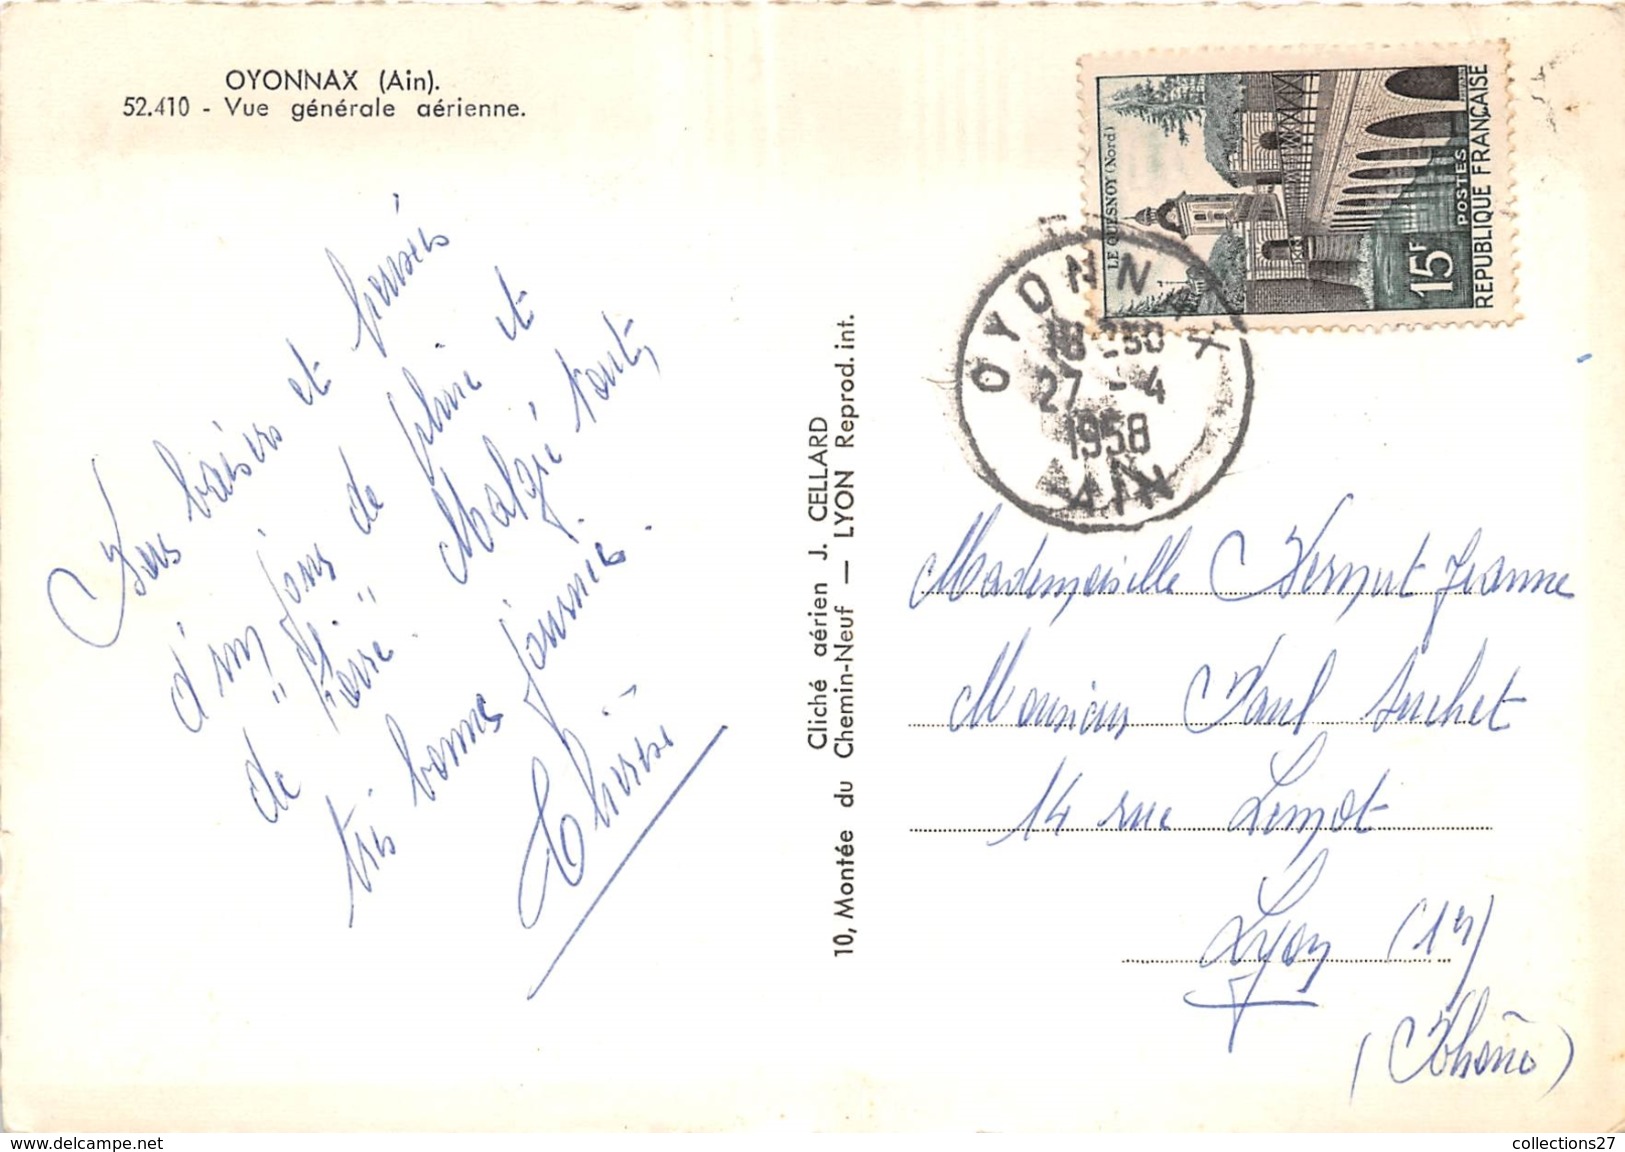 OYONNAX (Ain).
52.410 - Vue générale aérienne.
baisers et pensées
d'un jour de pluie et
de " foire ". Malgré tout,
très bonne journée.
Thérèse
Cliché aérien J. CELLARD
10, Montée du Chemin-Neuf — LYON Reprod. int.
LE QUESNOY (Nord)
15F
POSTES
REPUBLIQUE FRANÇAISE
OYONNAX
18 30
27 - 4
1958
AIN
Mademoiselle Vernut Jeanne
Monsieur Paul Suchet
14 rue Lemot
Lyon (1er)
(Rhône)
www.delcampe.net
collections27